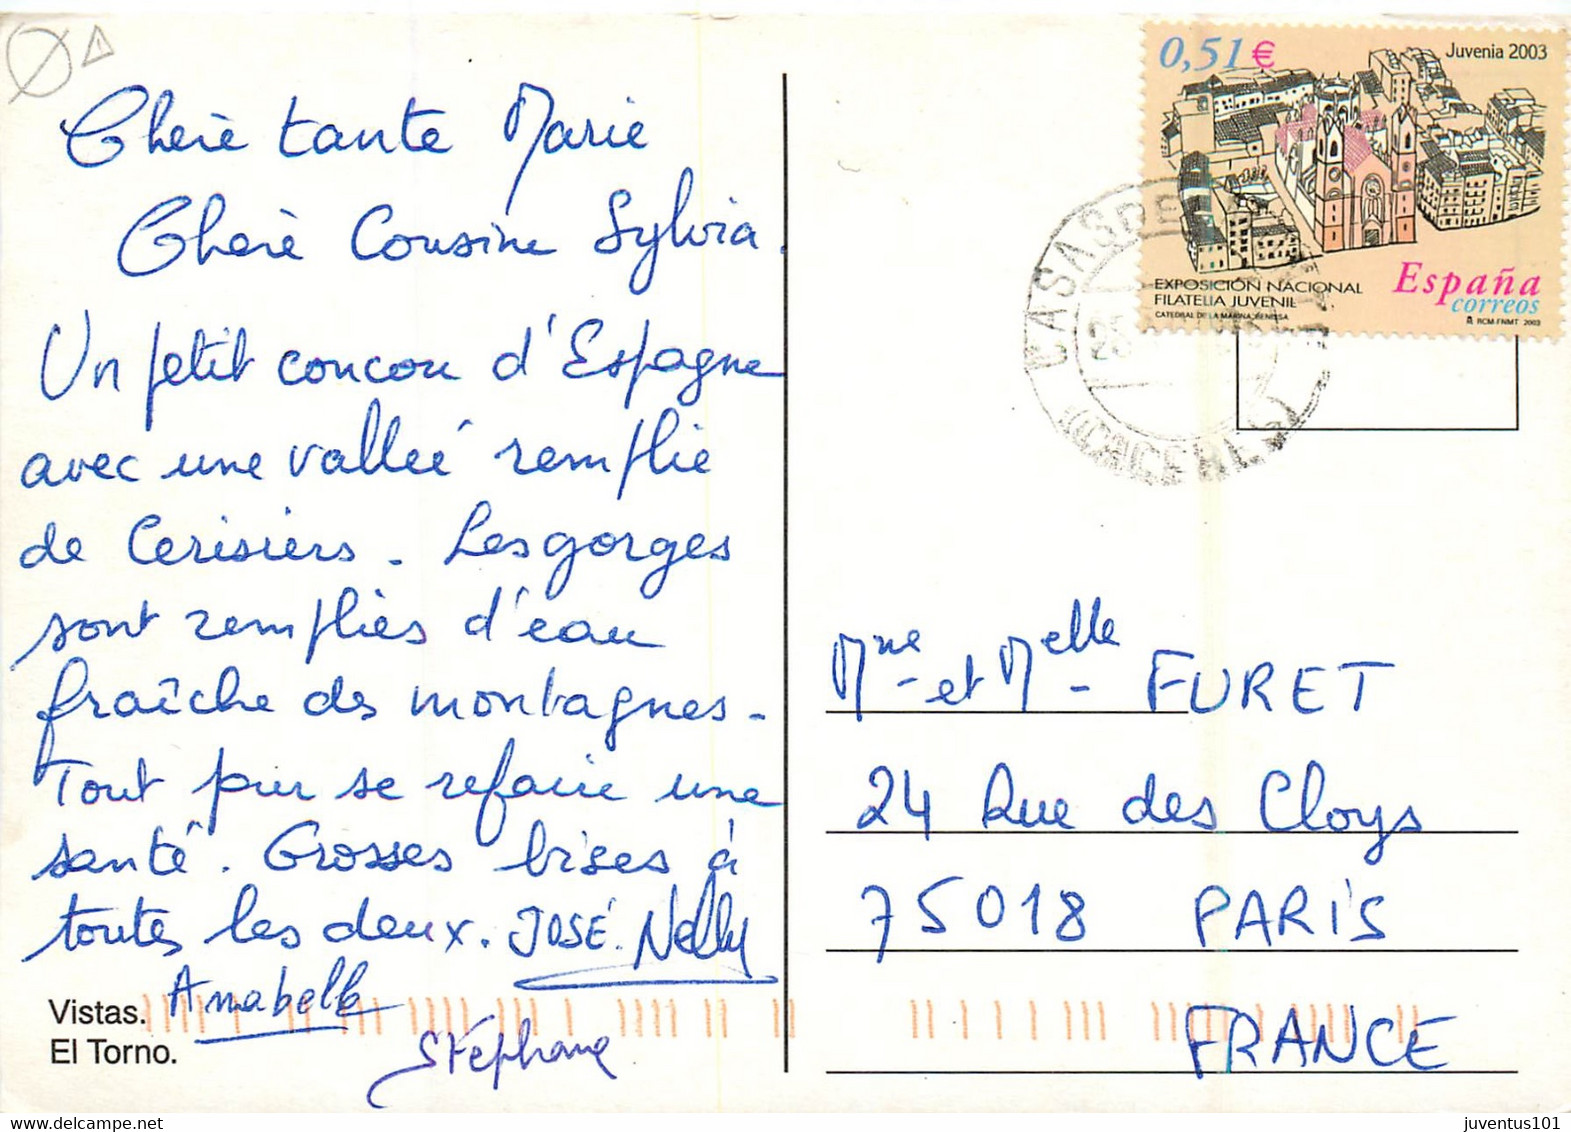 Cherè tante Marie
Cherè Cousine Sylvia.
Un petit concou d'Espagne
avec une valleé remplie
de Cerisiers. Les gorges
sont remplies d'eau
fraîche des montagnes.
Tout pour se refaire une
santé. Grosses bises à
toutes les deux. JOSÉ. Nelly
Anabelle
Stéphane
Vistas.
El Torno.
0,51€
Juvenia 2003
EXPOSICIÓN NACIONAL
FILATELIA JUVENIL
CATEDRAL DE LA MARINA, BENISSA
España
correos
RCM-FNMT 2003
(CACERES)
Mme et Melle FURET
24 Rue des Cloys
75018 PARIS
FRANCE
juventus101